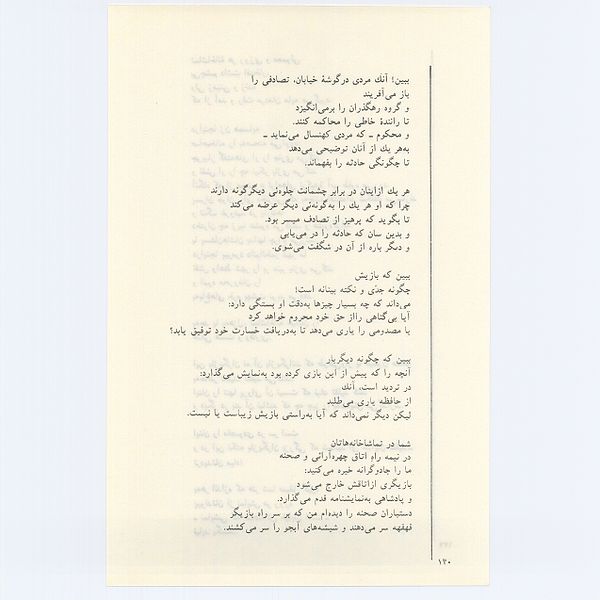 ببین! آنك مردی درگوشهٔ خیابان، تصادفی را
باز می‌آفریند
و گروه رهگذران را برمی‌انگیزد
تا رانندهٔ خاطی را محاکمه کنند.
و محکوم ــ که مردی کهنسال می‌نماید ــ
به‌هر یك از آنان توضیحی می‌دهد
تا چگونگی حادثه را بفهماند.
هر یك ازاینان در برابر چشمانت جلوه‌ئی دیگرگونه دارند
چرا که او هر یك را به‌گونه‌ئی دیگر عرضه می‌کند
تا بگوید که پرهیز از تصادف میسر بود.
و بدین سان که حادثه را در می‌یابی
و دیگر باره از آن در شگفت می‌شوی.
ببین که بازیش
چگونه جدّی و نکته بینانه است!
می‌داند که چه بسیار چیزها به‌دقت او بستگی دارد:
آیا بی‌گناهی رااز حق خود محروم خواهد کرد
یا مصدومی را یاری می‌دهد تا به‌دریافت خسارت خود توفیق یابد؟
ببین که چگونه دیگربار
آنچه را که پیش از این بازی کرده بود به‌نمایش می‌گذارد:
در تردید است، آنك
از حافظه یاری می‌طلبد
لیکن دیگر نمی‌داند که آیا به‌راستی بازیش زیباست یا نیست.
شما در تماشاخانه‌هاتان
در نیمه راهِ اتاق چهره‌آرائی و صحنه
ما را جادوگرانه خیره می‌کنید:
بازیگری ازاتاقش خارج می‌شود
و پادشاهی به‌نمایشنامه قدم می‌گذارد.
دستیاران صحنه را دیده‌ام من که بر سر راه بازیگر
قهقهه سر می‌دهند و شیشه‌های آبجو را سر می‌کشند.
۱۳۰